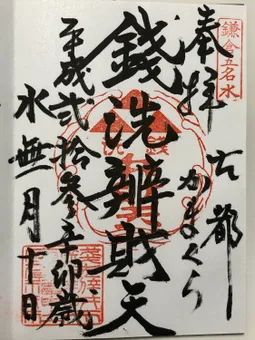 鎌倉五名水
奉拝
古都
かまくら
銭洗辨財天
平成弐拾参年辛卯歳
水無月十日